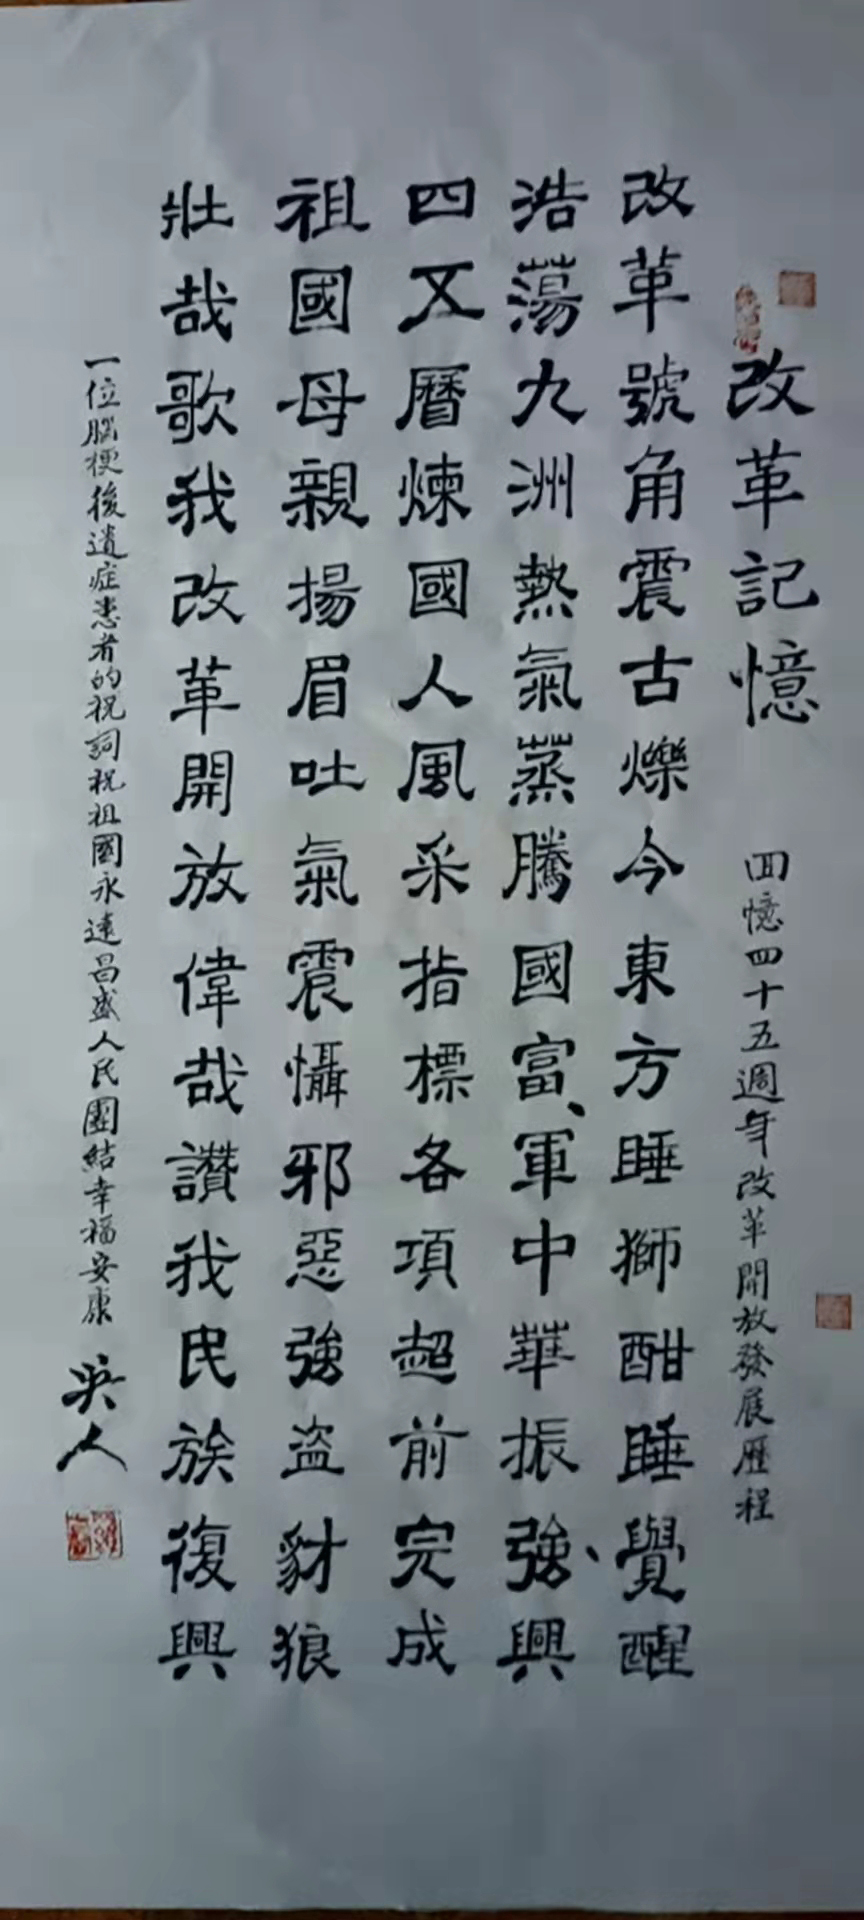 改革記憶
回憶四十五週年改革開放發展歷程
改革號角震古爍今東方睡獅酣睡覺醒
浩蕩九洲熱氣蒸騰國富、軍中華振強、興
四五曆煉國人風采指標各項超前完成
祖國母親揚眉吐氣震懾邪惡強盜豺狼
壯哉歌我改革開放偉哉讚我民族復興
一位腦梗後遺症患者的祝詞祝祖國永遠昌盛人民團結幸福安康
吳人